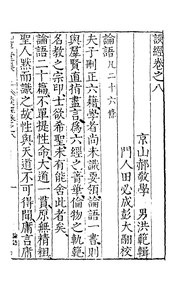 談經卷之八
京山郝敬學 男洪範輯
門人田必成彭大翮校
論語凡二十六條
夫子刪正六籍學者尚未識要領論語一書則
與羣賢直指晝言爲六經之菁華倫物之軌範
名教之宗甲士欲希聖未有能舍此者矣
論語二十篇不單提性命天道一貫原無精粗
聖人默而識之故性與天道不可得聞庸言庸